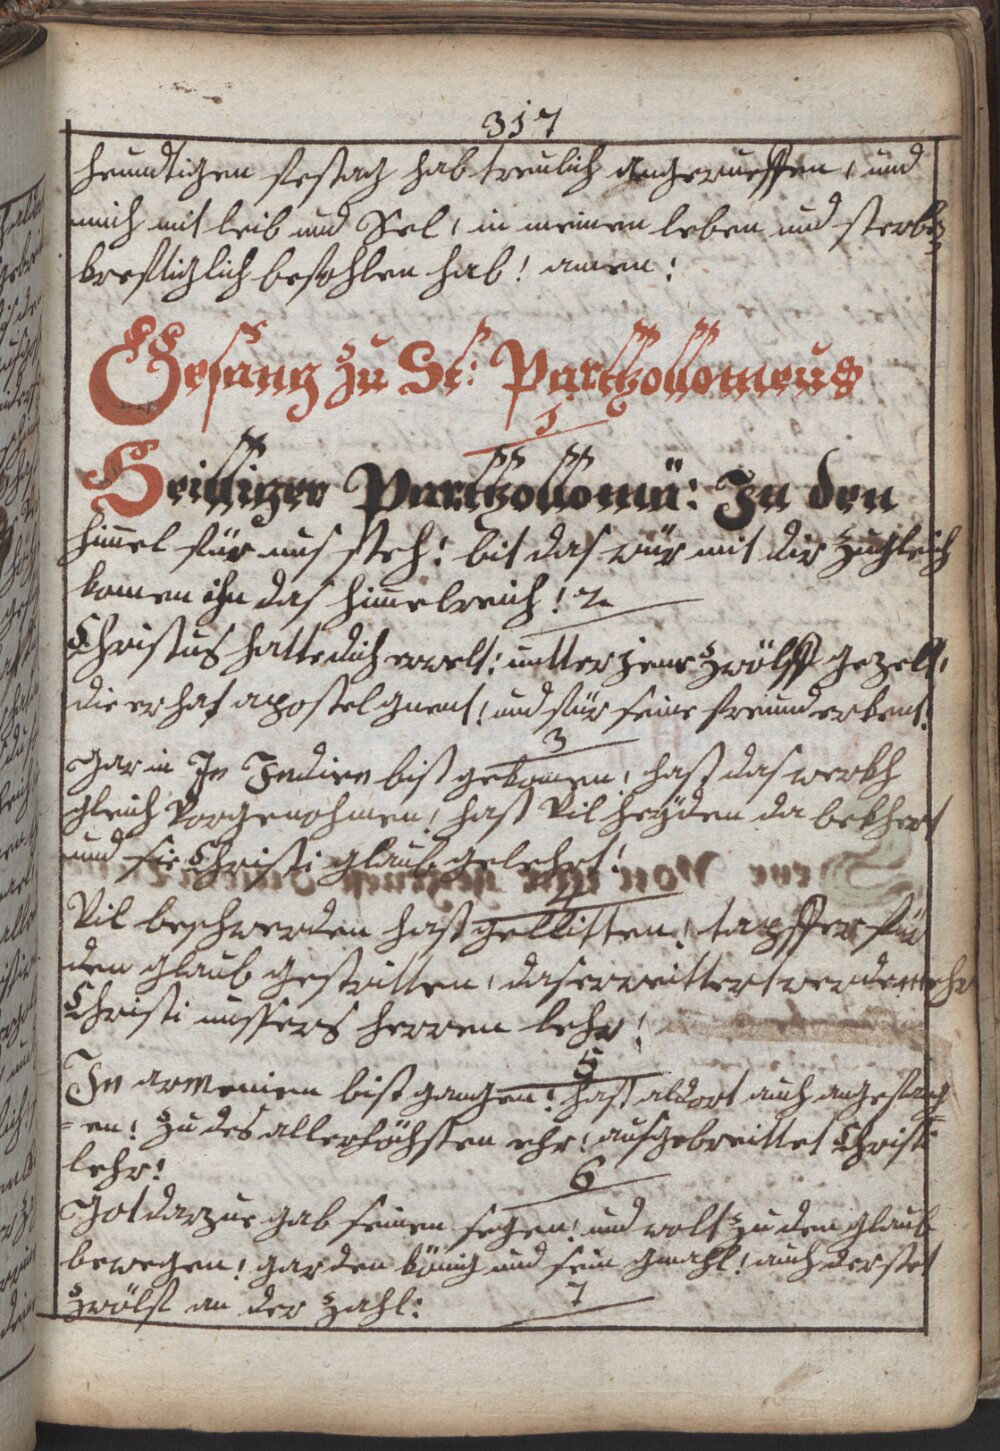 317
heundtigen festag hab treulich angerueffen, und
mich mit leib und Sel, in meinen leben und sterbē
kreftichlich befohlen hab! amen:
Gesang zu St: Partholomeus
1
Heilliger Partholomü: In den
himel für uns steh! bit das wür mit dir zugleich
komen ihn das himelreich! 2
Christus hatte dich erwelt: untter jene zwölff gezelt,
die er hat apostel gnent, und für seine freund erkent!
3
Gar in In Indien bist gekomen, hast das werkh
gleich vorgenohmen, hast vil heyden da bekhert
und sie Christi glaub gelehrt!
4
Vil beschwerden hast gellitten, tapffer für
den glaub gestritten, das erweittert werde mehr
Christi unssers herren lehr!
5
In armenien bist gangen! hast aldort auch angefang
= en! zu des allerhöchsten ehr! ausgebreittet Christi
lehr!
6
Got darzue gab seinen segen! und wolt zu den glaub
bewegen! gar den König und sein gmahl! auch der stet
zwölf an der zahl:
7